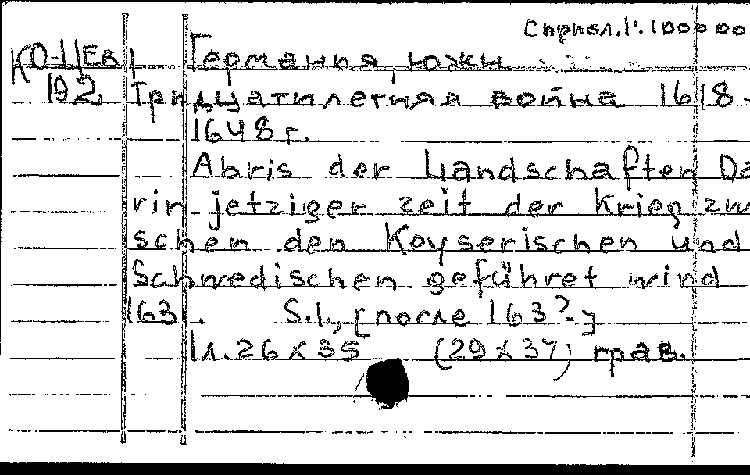 Сприсл. 1:100000
КО-1/Ев1 Германия, южн
192 Тридцатилетняя война 1618-
1648 г.
Abris der Landschaften Da
rin jetziger zeit der Krieg zwi
schen den Keyserischen und
Schwedischen geführet wird
163 . S.l., [после 163?-]
1 л. 26 х 35 (29 х 37) грав.